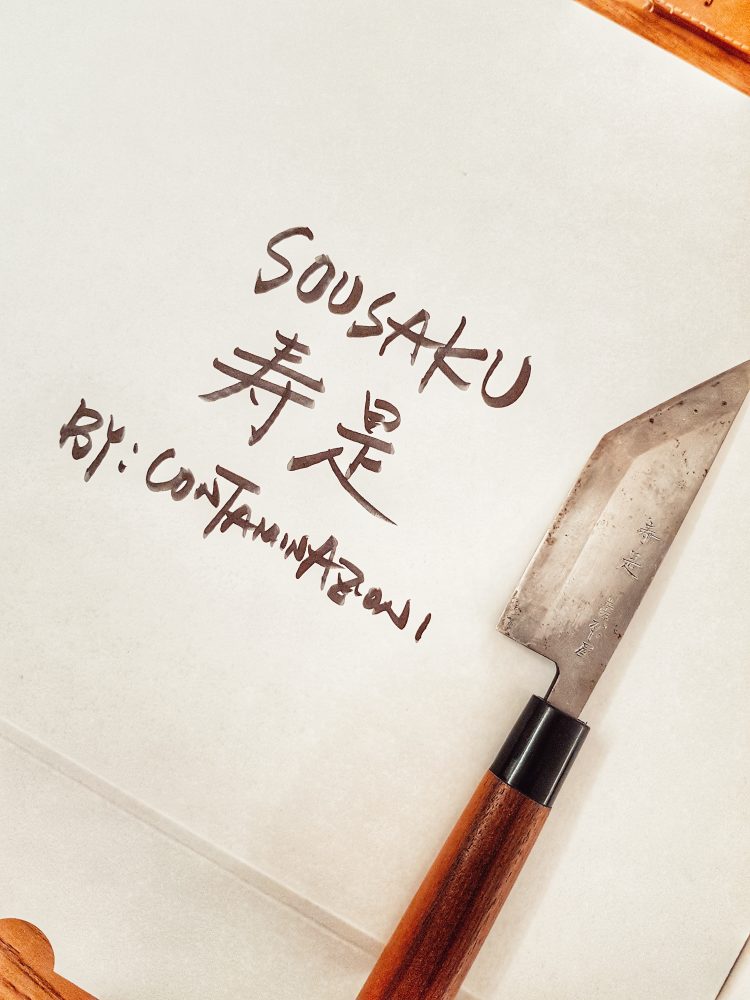 SOUSAKU
寿是
BY: CONTAMINAZIONI